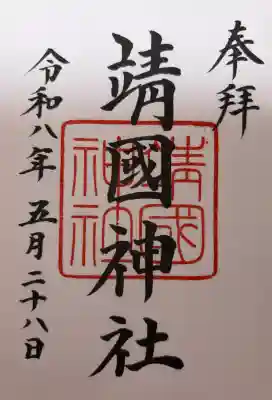 奉拝
靖國神社
靖國神社
令和八年五月二十八日